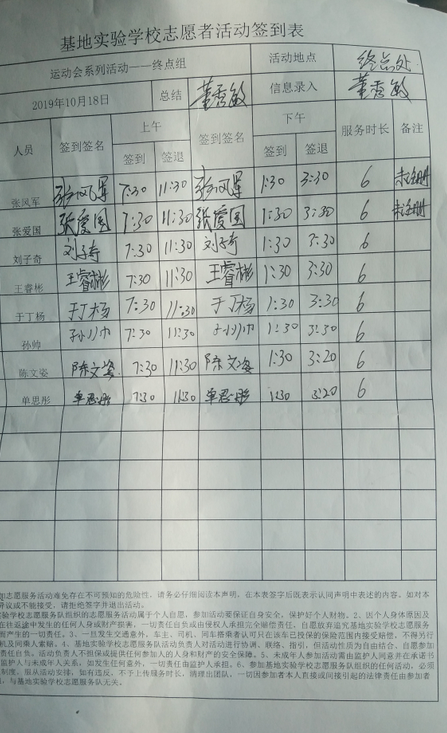 基地实验学校志愿者活动签到表
运动会系列活动——终点组 活动地点 终点处
2019年10月18日 总结 董秀敏 信息录入 董秀敏
人员 签到签名 上午 签到签名 下午 服务时长 备注
签到 签退 签到 签退
张凤军 张凤军 7:30 11:30 张凤军 1:30 3:30 6 未注册
张爱国 张爱国 7:30 11:30 张爱国 1:30 3:30 6 未注册
刘子奇 刘子奇 7:30 11:30 刘子奇 1:30 3:30 6
王睿彬 王睿彬 7:30 11:30 王睿彬 1:30 3:30 6
于丁杨 于丁杨 7:30 11:30 于丁杨 1:30 3:30 6
孙帅 孙帅 7:30 11:30 孙帅 1:30 3:30 6
陈文姿 陈文姿 7:30 11:30 陈文姿 1:30 3:20 6
单思彤 单思彤 7:30 11:30 单思彤 1:30 3:20 6
加志愿服务活动难免存在不可预知的危险性，请务必仔细阅读本声明，在本表签字后既表示认同声明中表述的内容。如对本
异议或不能接受，请拒绝签字并退出活动。
实验学校志愿服务队组织的志愿服务活动属于个人自愿，参加活动要保证自身安全，保护好个人财物。2、因个人身体原因及
在往返途中发生的任何人身或财产损害，一切责任自负或由侵权人承担完全赔偿责任，自愿放弃追究基地实验学校志愿服务
而产生的一切责任。3、一旦发生交通意外，车主、司机、同车搭乘者认可只在该车已投保的保险范围内接受赔偿，不得另行
机及同乘人索赔。4、基地实验学校志愿服务队负责人对活动进行协调、联络、指引，但活动性质为自由结合，自愿参加
责任自负。活动负责人不担保或提供任何参加人的人身和财产的安全保障。5、未成年人参加活动需由监护人同意并在承诺书
监护人与未成年人关系，如发生任何意外，一切责任由监护人承担。6、参加基地实验学校志愿服务队组织的任何活动，必须
制度，服从活动安排，如有违反，不予上传服务时长，清理出团队，一切因参加者本人直接或间接引起的法律责任由参加者
，与基地实验学校志愿服务队无关。